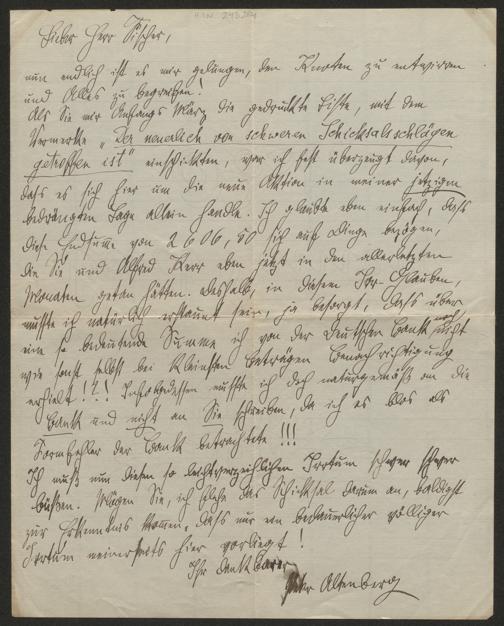 H.I.N. 243.284
Lieber Herr Fischer,
nun endlich ist es mir gelungen, den Knoten zu entwirren
und Alles zu begreifen!
Als Sie mir Anfangs März die gedruckte Liste, mit dem
Vermerke „Der neuerlich von schweren Schicksalsschlägen
getroffen ist" einschickten, war ich fest überzeugt davon,
dass es sich hier um die neue Aktion in meiner jetzigen
bedrängten Lage allein handle. Ich glaubte eben einfach, dass
diese Endsumme von 2606,50 sich auf Dinge bezögen,
die Sie und Alfred Kerr eben jetzt in den allerletzten
Monaten getan hätten. Deshalb, in diesem Irr-Glauben,
musste ich natürlich erstaunt sein, ja besorgt, dass über
eine so bedeutende Summe ich von der Deutschen Bank noch nicht
wie sonst selbst bei kleinsten Beträgen Benachrichtigung
erhielt!?! Infolgedessen musste ich doch naturgemäss an die
Bank und nicht an Sie schreiben, da ich es blos als
Formfehler der Bank betrachtete!!!
Ich muss nun diesen so leichtverzeihlichen Irrtum schwer schwer
büssen. Mögen Sie, ich flehe das Schicksal darum an, baldigst
zur Erkenntnis kommen, dass nur ein bedauerlicher völliger
Irrtum meinerseits hier vorliegt!
Ihr dankbarer
Peter Altenberg